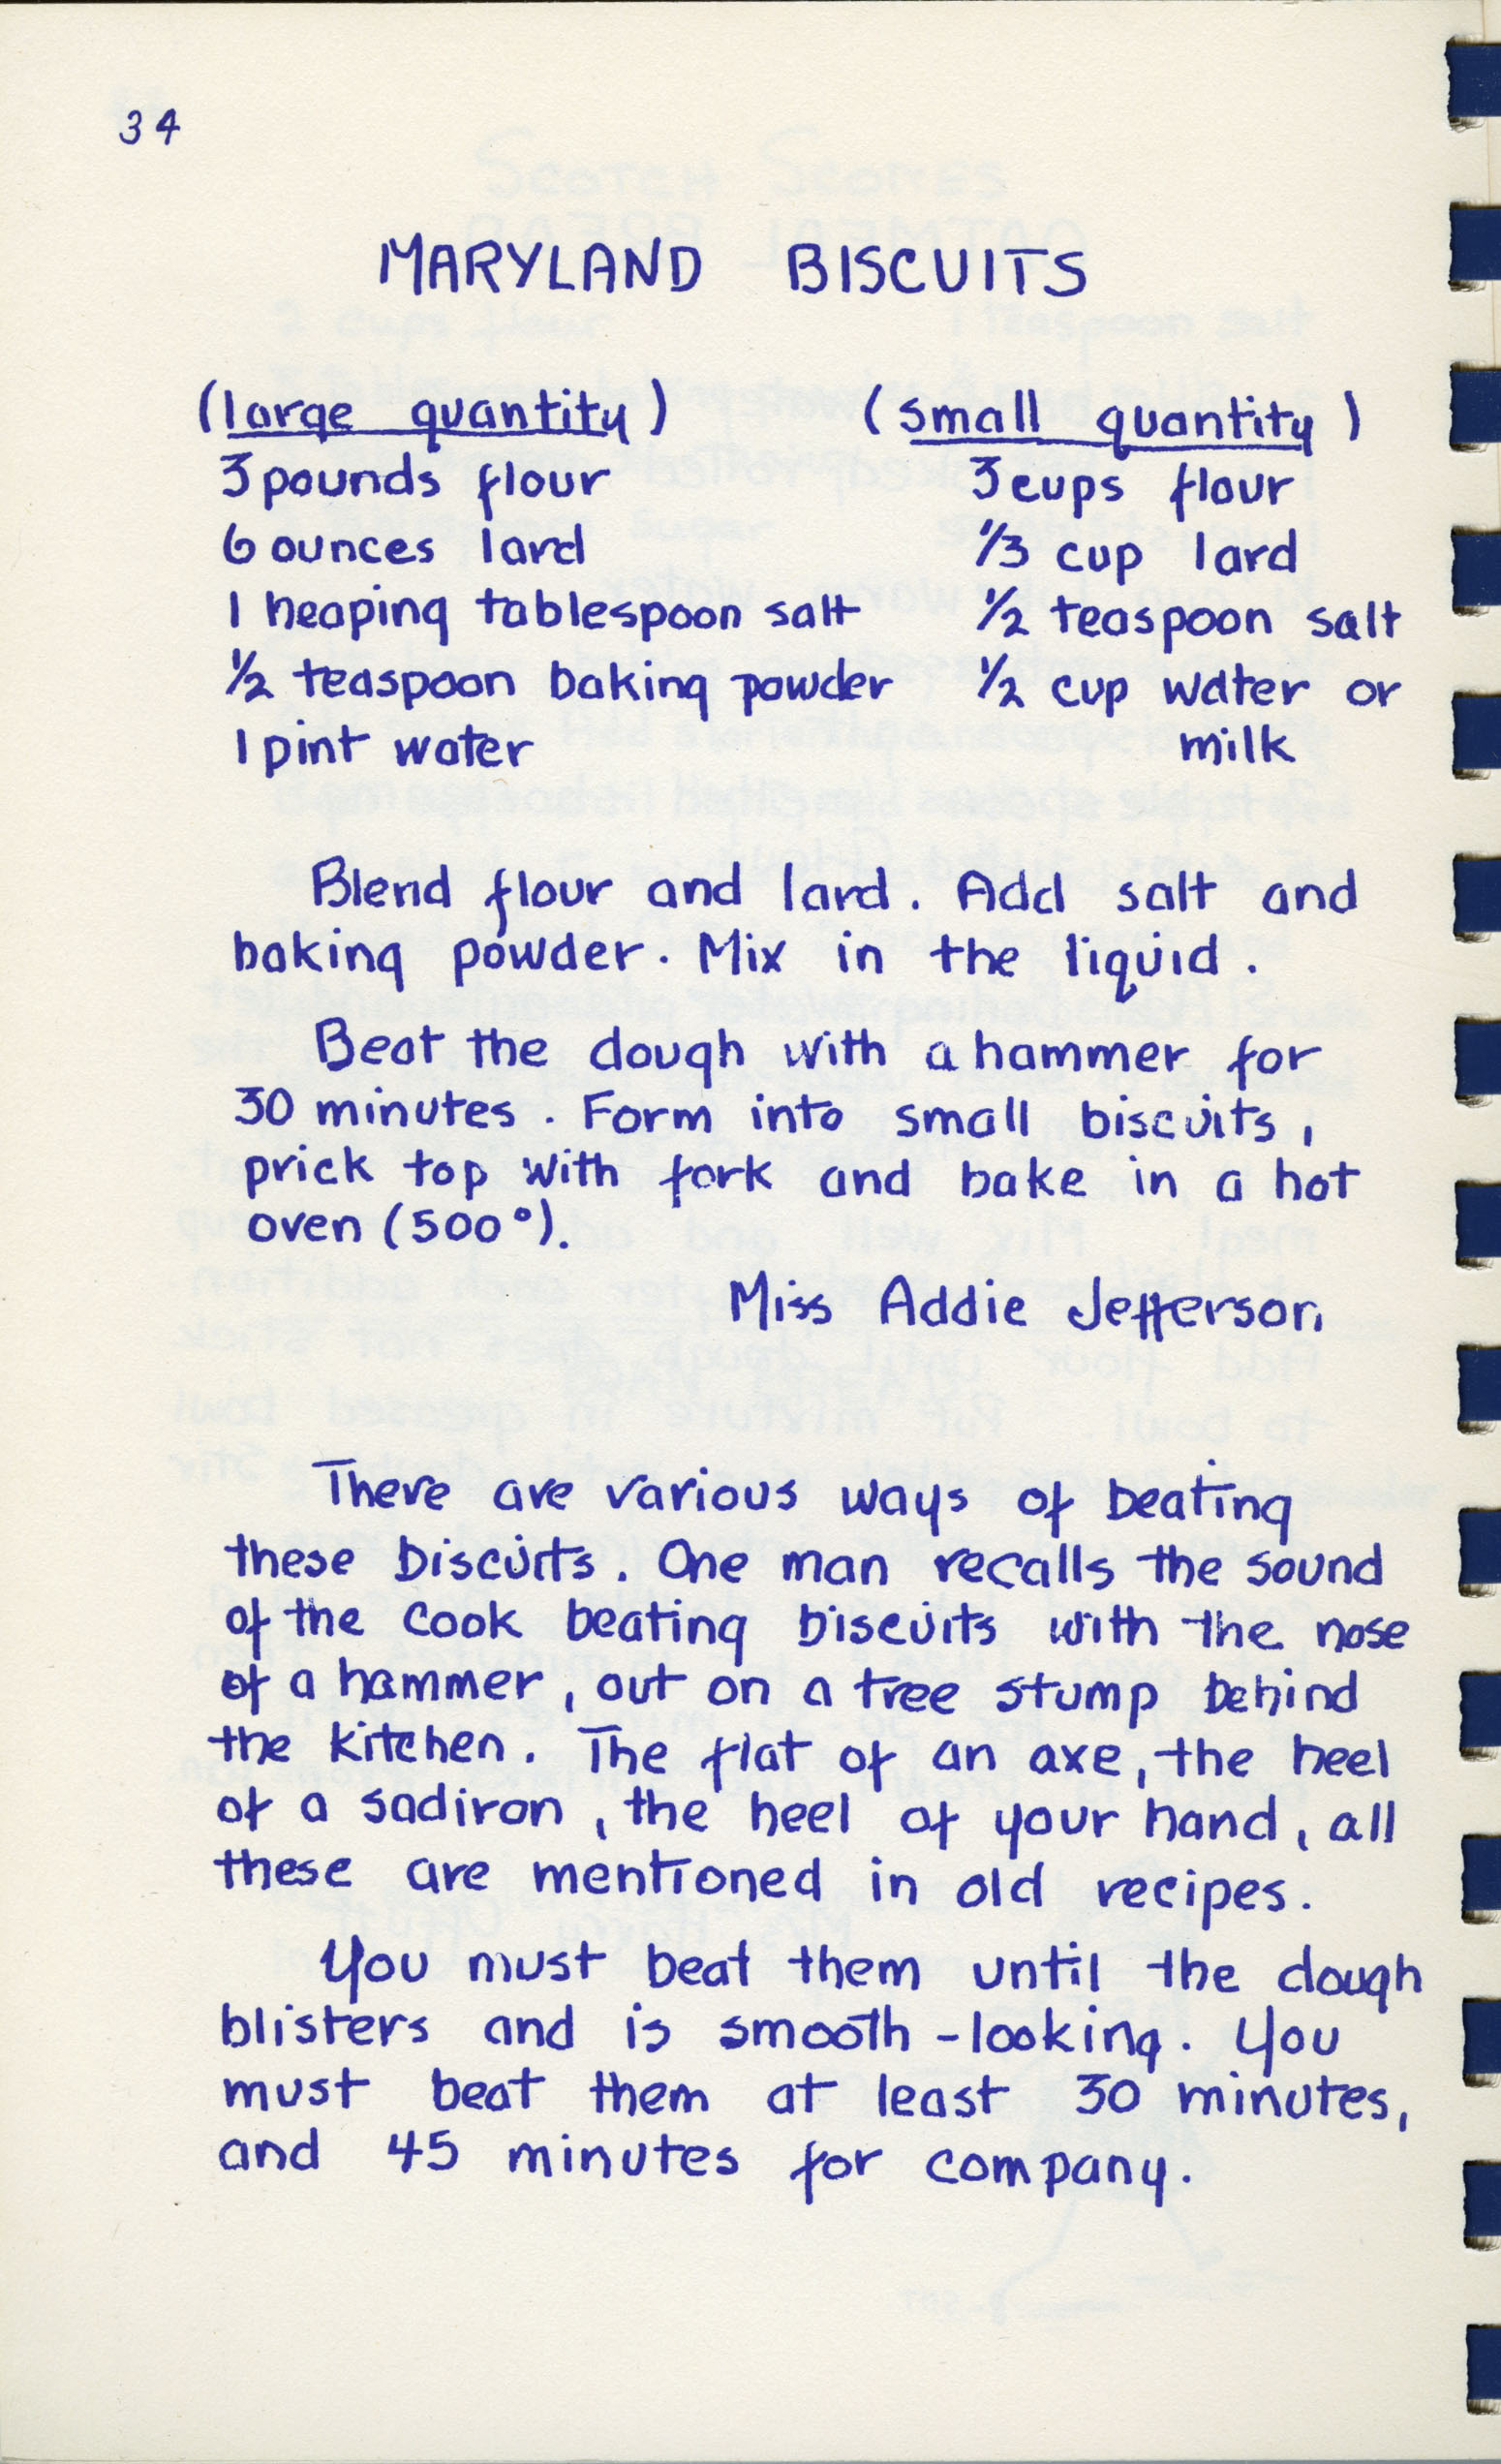 34
MARYLAND BISCUITS
(large quantity) (small quantity)
3 pounds flour 3 cups flour
6 ounces lard 1/3 cup lard
1 heaping tablespoon salt 1/2 teaspoon salt
1/2 teaspoon baking powder 1/2 cup water or
1 pint water milk
Blend flour and lard. Add salt and
baking powder. Mix in the liquid.
Beat the dough with a hammer for
30 minutes. Form into small biscuits,
prick top with fork and bake in a hot
oven (500°).
Miss Addie Jefferson
There are various ways of beating
these biscuits. One man recalls the sound
of the cook beating biscuits with the nose
of a hammer, out on a tree stump behind
the kitchen. The flat of an axe, the heel
of a sadiron, the heel of your hand, all
these are mentioned in old recipes.
You must beat them until the dough
blisters and is smooth-looking. You
must beat them at least 30 minutes,
and 45 minutes for company.